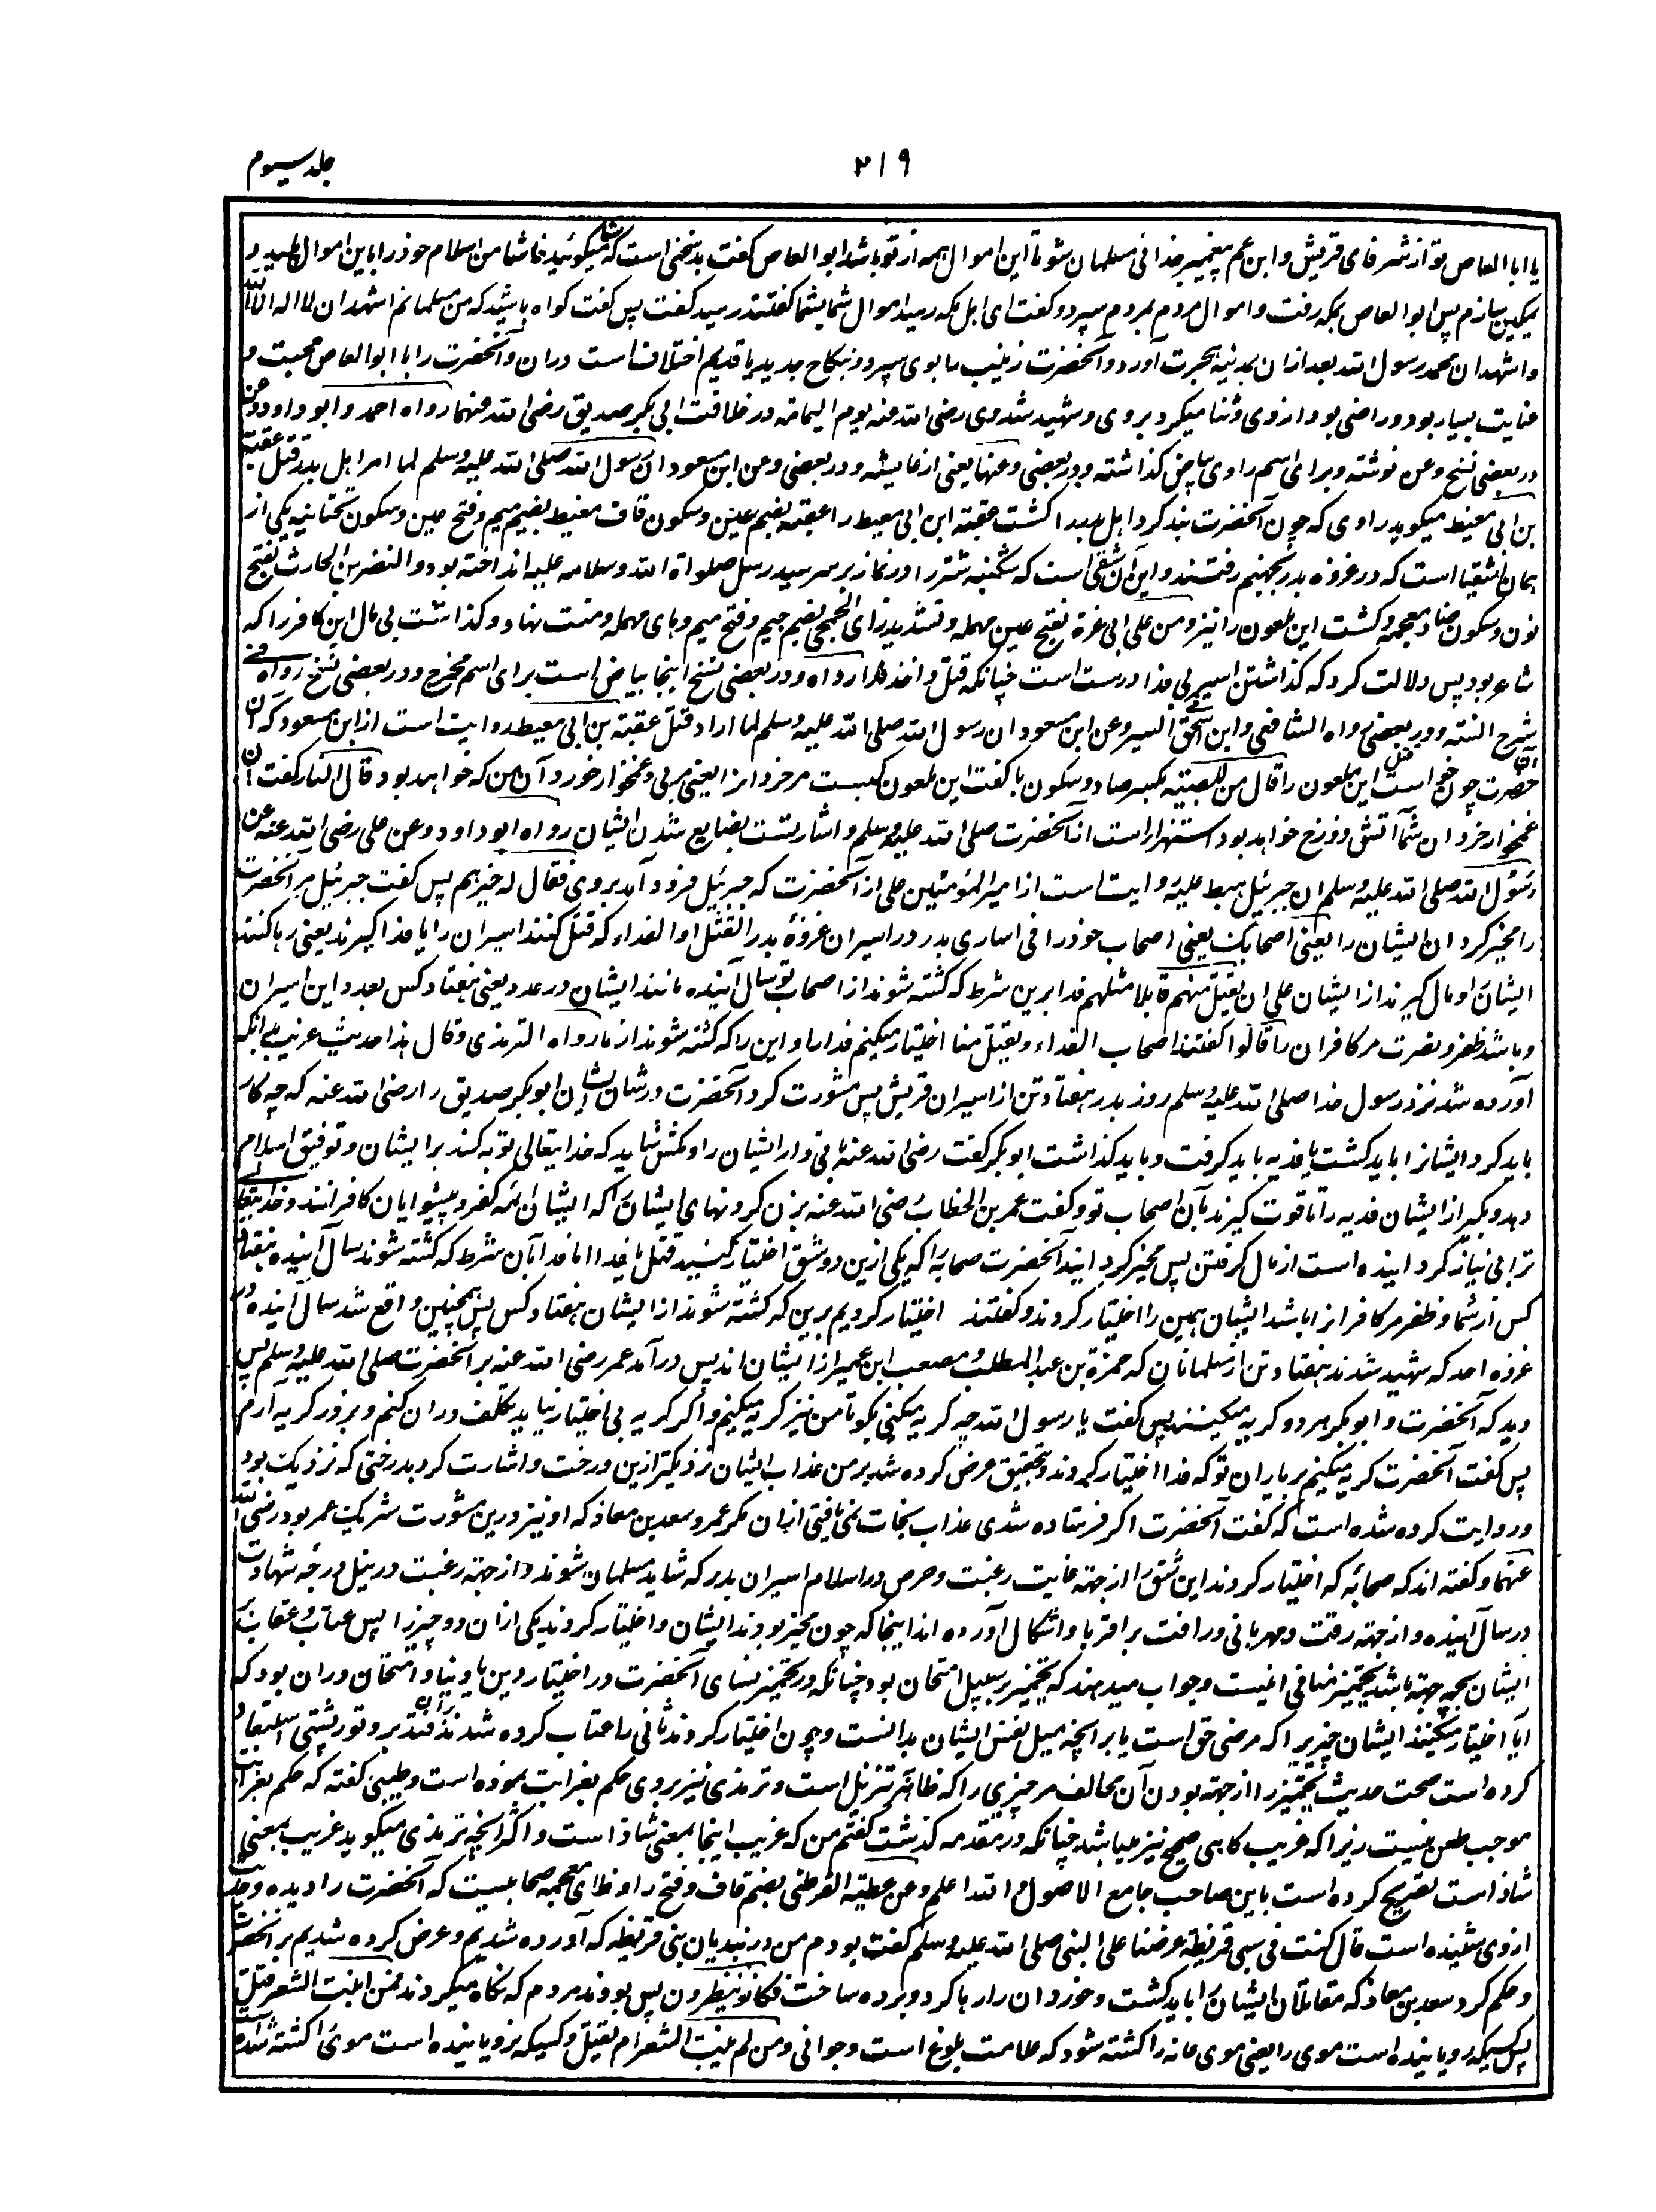 جلد سیوم
۳۱۹
یا ابا العاص تو از شرفای قریش و ابن عم پیغمبر خدائی مسلمان شو تا این اموال همه از تو باشد ابو العاص گفت بد سخنی است که میگوئید شما من اسلام خود را باین اموال پلید و
بسازم پس ابو العاص بمکه رفت و اموال مردم بمردم سپرد و گفت ای اهل مکه رسید اموال شما بشما گفتند رسید گفت پس گفت گواه باشید که من مسلمانم اشهد ان لا اله الا الله
و اشهد ان محمد رسول الله بعد ازان بمدینه هجرت آورد و آنحضرت زینب را بوی سپرد و بنکاح جدید یا قدیم اختلاف است دران و آنحضرت را با ابو العاص محبت و
عنایت بسیار بود و راضی بود از وی و ثنا میکرد بروی و شهید شد وی رضی الله عنه یوم الیمامه در خلافت ابی بکر صدیق رضی الله عنهما رواه احمد و ابو داود و عن
در بعضی نسخ وعن نوشته و برای اسم راوی بیاض گذاشته و در بعضی وعنها یعنی از عایشه و در بعضی وعن ابن مسعود ان رسول الله صلی الله علیه وسلم لما اسر اهل بدر قتل عقبة
بن ابی معیط میگوید راوی که چون آنحضرت بند کرد اهل بدر را کشت عقبة ابن ابی معیط را عقبه بضم عین و سکون قاف معیط بضم میم و فتح عین و سکون تحتانیه یکی از
همان اشقیا است که در غزوه بدر بجهنم رفتند و این آن شقی است که شکنبه شتر را در نماز بر سر سید رسل صلواة الله و سلامه علیه انداخته بود و النضر بن الحارث بفتح
نون و سکون ضاد معجمه و کشت این ملعون را نیز و من علی ابی عزة بفتح عین مهمله و تشدید زای الجمحی بضم جیم و فتح میم و بای مهمله و منت نهاد و گذاشت بی مال این کافر را که
شاعر بود پس دلالت کرد که گذاشتن اسیر بی فدا درست است چنانکه قتل و اخذ فدا رواه و در بعضی نسخ اینجا بیاض است برای اسم مخرج و در بعضی نسخ رواه فی
شرح السنة و در بعضی رواه الشافعی و ابن اسحق فی السیر وعن ابن مسعود ان رسول الله صلی الله علیه وسلم لما اراد قتل عقبة بن ابی معیط روایت است از ابن مسعود که آن
حضرت چون خواست قتل این ملعون را قال من للصبیة بکسر صاد و سکون با گفت این ملعون کیست مر خردان را یعنی مربی و غمخوار خورد آن من که خواهد بود قال النار گفت آن
غمخوار خردان شما آتش دوزخ خواهد بود استهزا است از آنحضرت صلی الله علیه وسلم و اشارتست بضایع شدن ایشان رواه ابو داود وعن علی رضی الله عنه عن
رسول الله صلی الله علیه وسلم ان جبرئیل هبط علیه روایت است از امیر المؤمنین علی از آنحضرت که جبرئیل فرود آمد بروی فقال له خیرهم پس گفت جبرئیل مر آنحضرت
را مخیر گردان ایشان را یعنی اصحابک یعنی اصحاب خود را فی اساری بدر در اسیران غزوه بدر القتل او الفداء که قتل کنند اسیران را یا فدا گیرند یعنی رها کنند
ایشان را و مال گیرند از ایشان علی ان یقتل منهم قابلا مثلهم فدا برین شرط که کشته شوند از اصحاب تو سال آینده مانند ایشان در عدد یعنی هفتاد کس بعدد این اسیران
و باشد ظفر و نصرت مر کافران را قالوا گفتند اصحاب الفداء و یقتل منا اختیار میکنیم فدا را و این را که کشته شوند از ما رواه الترمذی و قال هذا حدیث غریب بدانکه
آورده شد نزد رسول خدا صلی الله علیه وسلم روز بدر هفتاد تن از اسیران قریش پس مشورت کرد آنحضرت در شان ایشان ابو بکر صدیق را رضی الله عنه که چه کار
باید کرد ایشان را باید کشت یا فدیه باید گرفت و باید گذاشت ابو بکر گفت رضی الله عنه باقی دار ایشان را و مکش شاید که خدایتعالی توبه کند بر ایشان و توفیق اسلام
دهد و بگیر از ایشان فدیه را تا قوت گیرند بآن اصحاب تو و گفت عمر بن الخطاب رضی الله عنه بزن گردنهای ایشان را که ایشان ائمه کفر و پیشوایان کافرانند و خدایتعالی
ترا بی نیاز گردانیده است از مال گرفتن پس مخیر گردانید آنحضرت صحابه را که یکی ازین دو شق اختیار کنید قتل یا فدا اما فدا بآن شرط که کشته شوند سال آینده هفتاد
کس از شما و ظفر مر کافران را باشد ایشان همین را اختیار کردند و گفتند اختیار کردیم برین که کشته شوند از ایشان هفتاد کس پس همچنین واقع شد سال آینده در
غزوه احد که شهید شدند هفتاد تن از مسلمانان که حمزة بن عبد المطلب و مصعب ابن عمیر از ایشان اند پس درآمد عمر رضی الله عنه بر آنحضرت صلی الله علیه وسلم پس
دید که آنحضرت و ابو بکر هر دو گریه میکنند پس گفت یا رسول الله چه گریه میکنی بگو تا من نیز گریه میکنم و اگر گریه بی اختیار نیاید تکلف دران کنم و بزور گریه آرم
پس گفت آنحضرت گریه میکنم بر یاران تو که فدا اختیار کردند و بتحقیق عرض کرده شد بر من عذاب ایشان نزدیکتر ازین درخت و اشارت کرد بدرختی که نزدیک بود
و روایت کرده شده است که گفت آنحضرت اگر فرستاده شدی عذاب نجات نمی یافتی ازان مگر عمر و سعد بن معاذ که او نیز درین مشورت شریک عمر بود رضی الله
عنهما و گفته اند که صحابه که اختیار کردند این شق را از جهت غایت رغبت و حرص در اسلام اسیران بدر که شاید مسلمان شوند و از جهته رغبت در نیل درجه شهادت
در سال آینده و از جهته رقت و مهربانی و رافت بر اقربا و اشکال آورده اند اینجا که چون مخیر بودند ایشان و اختیار کردند یکی ازان دو چیز را پس عتاب و عقاب بر
ایشان بچه جهته باشد تخییر منافی اینست و جواب میدهند که تخییر بر سبیل امتحان بود چنانکه در تخییر نسای آنحضرت در اختیار دین یا دنیا و امتحان دران بود که
آیا اختیار میکنند ایشان چیزی را که مرضی حق است یا بر آنچه میل نفس ایشان بدانست و چون اختیار کردند ثانی را عتاب کرده شدند بران و تورپشتی استبعاد
کرده است صحت حدیث تخییر را از جهته بودن آن مخالف مر چیزی را که ظاهر تنزیل است و ترمذی نیز بروی حکم بغرابت نموده است و طیبی گفته که حکم بغرابت
موجب طعن نیست زیرا که غریب گاهی صحیح نیز میباشد چنانکه در مقدمه گذشت گفتم من که غریب اینجا بمعنی شاذ است و اکثر آنچه ترمذی میگوید غریب بمعنی
شاذ است تصریح کرده است باین صاحب جامع الاصول و الله اعلم وعن عطیة القرظی بضم قاف و فتح را و ظای معجمه صحابیست که آنحضرت را دیده و حدیث
ازوی شنیده است قال کنت فی سبی قریظة عرضنا علی النبی صلی الله علیه وسلم گفت بودم من در بندیان بنی قریظه که آورده شدیم و عرض کرده شدیم بر آنحضرت
و حکم کرد سعد بن معاذ که مقاتلان ایشان را باید کشت و خوردان را رها کرد و برده ساخت فکانوا ینظرون پس بودند مردم که نگاه میکردند فمن انبت الشعر قتل
پس کسیکه رویانیده است موی را یعنی موی عانه را کشته شود که علامت بلوغ است و جوانی و من لم ینبت الشعر لم یقتل و کسیکه نرویانیده است موی را کشته نشد